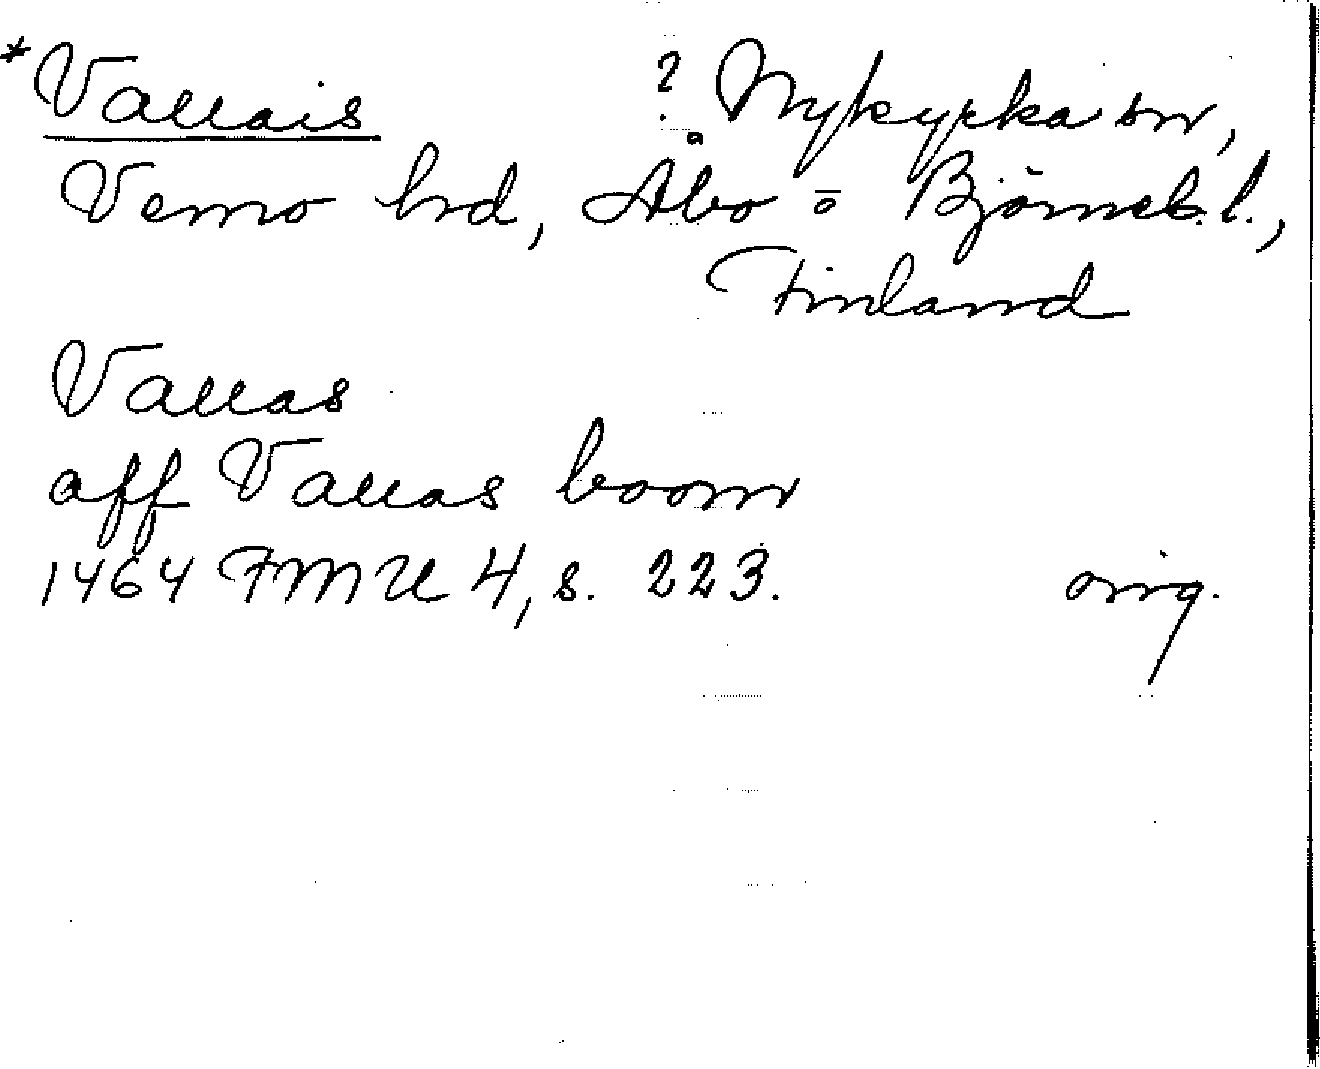 *Vallais ? Nykyrka sn,
Vemo hrd, Åbo o Björneb. l.,
Finland
Vallas
aff Vallas boom
1464 FMU 4, s. 223. orig.